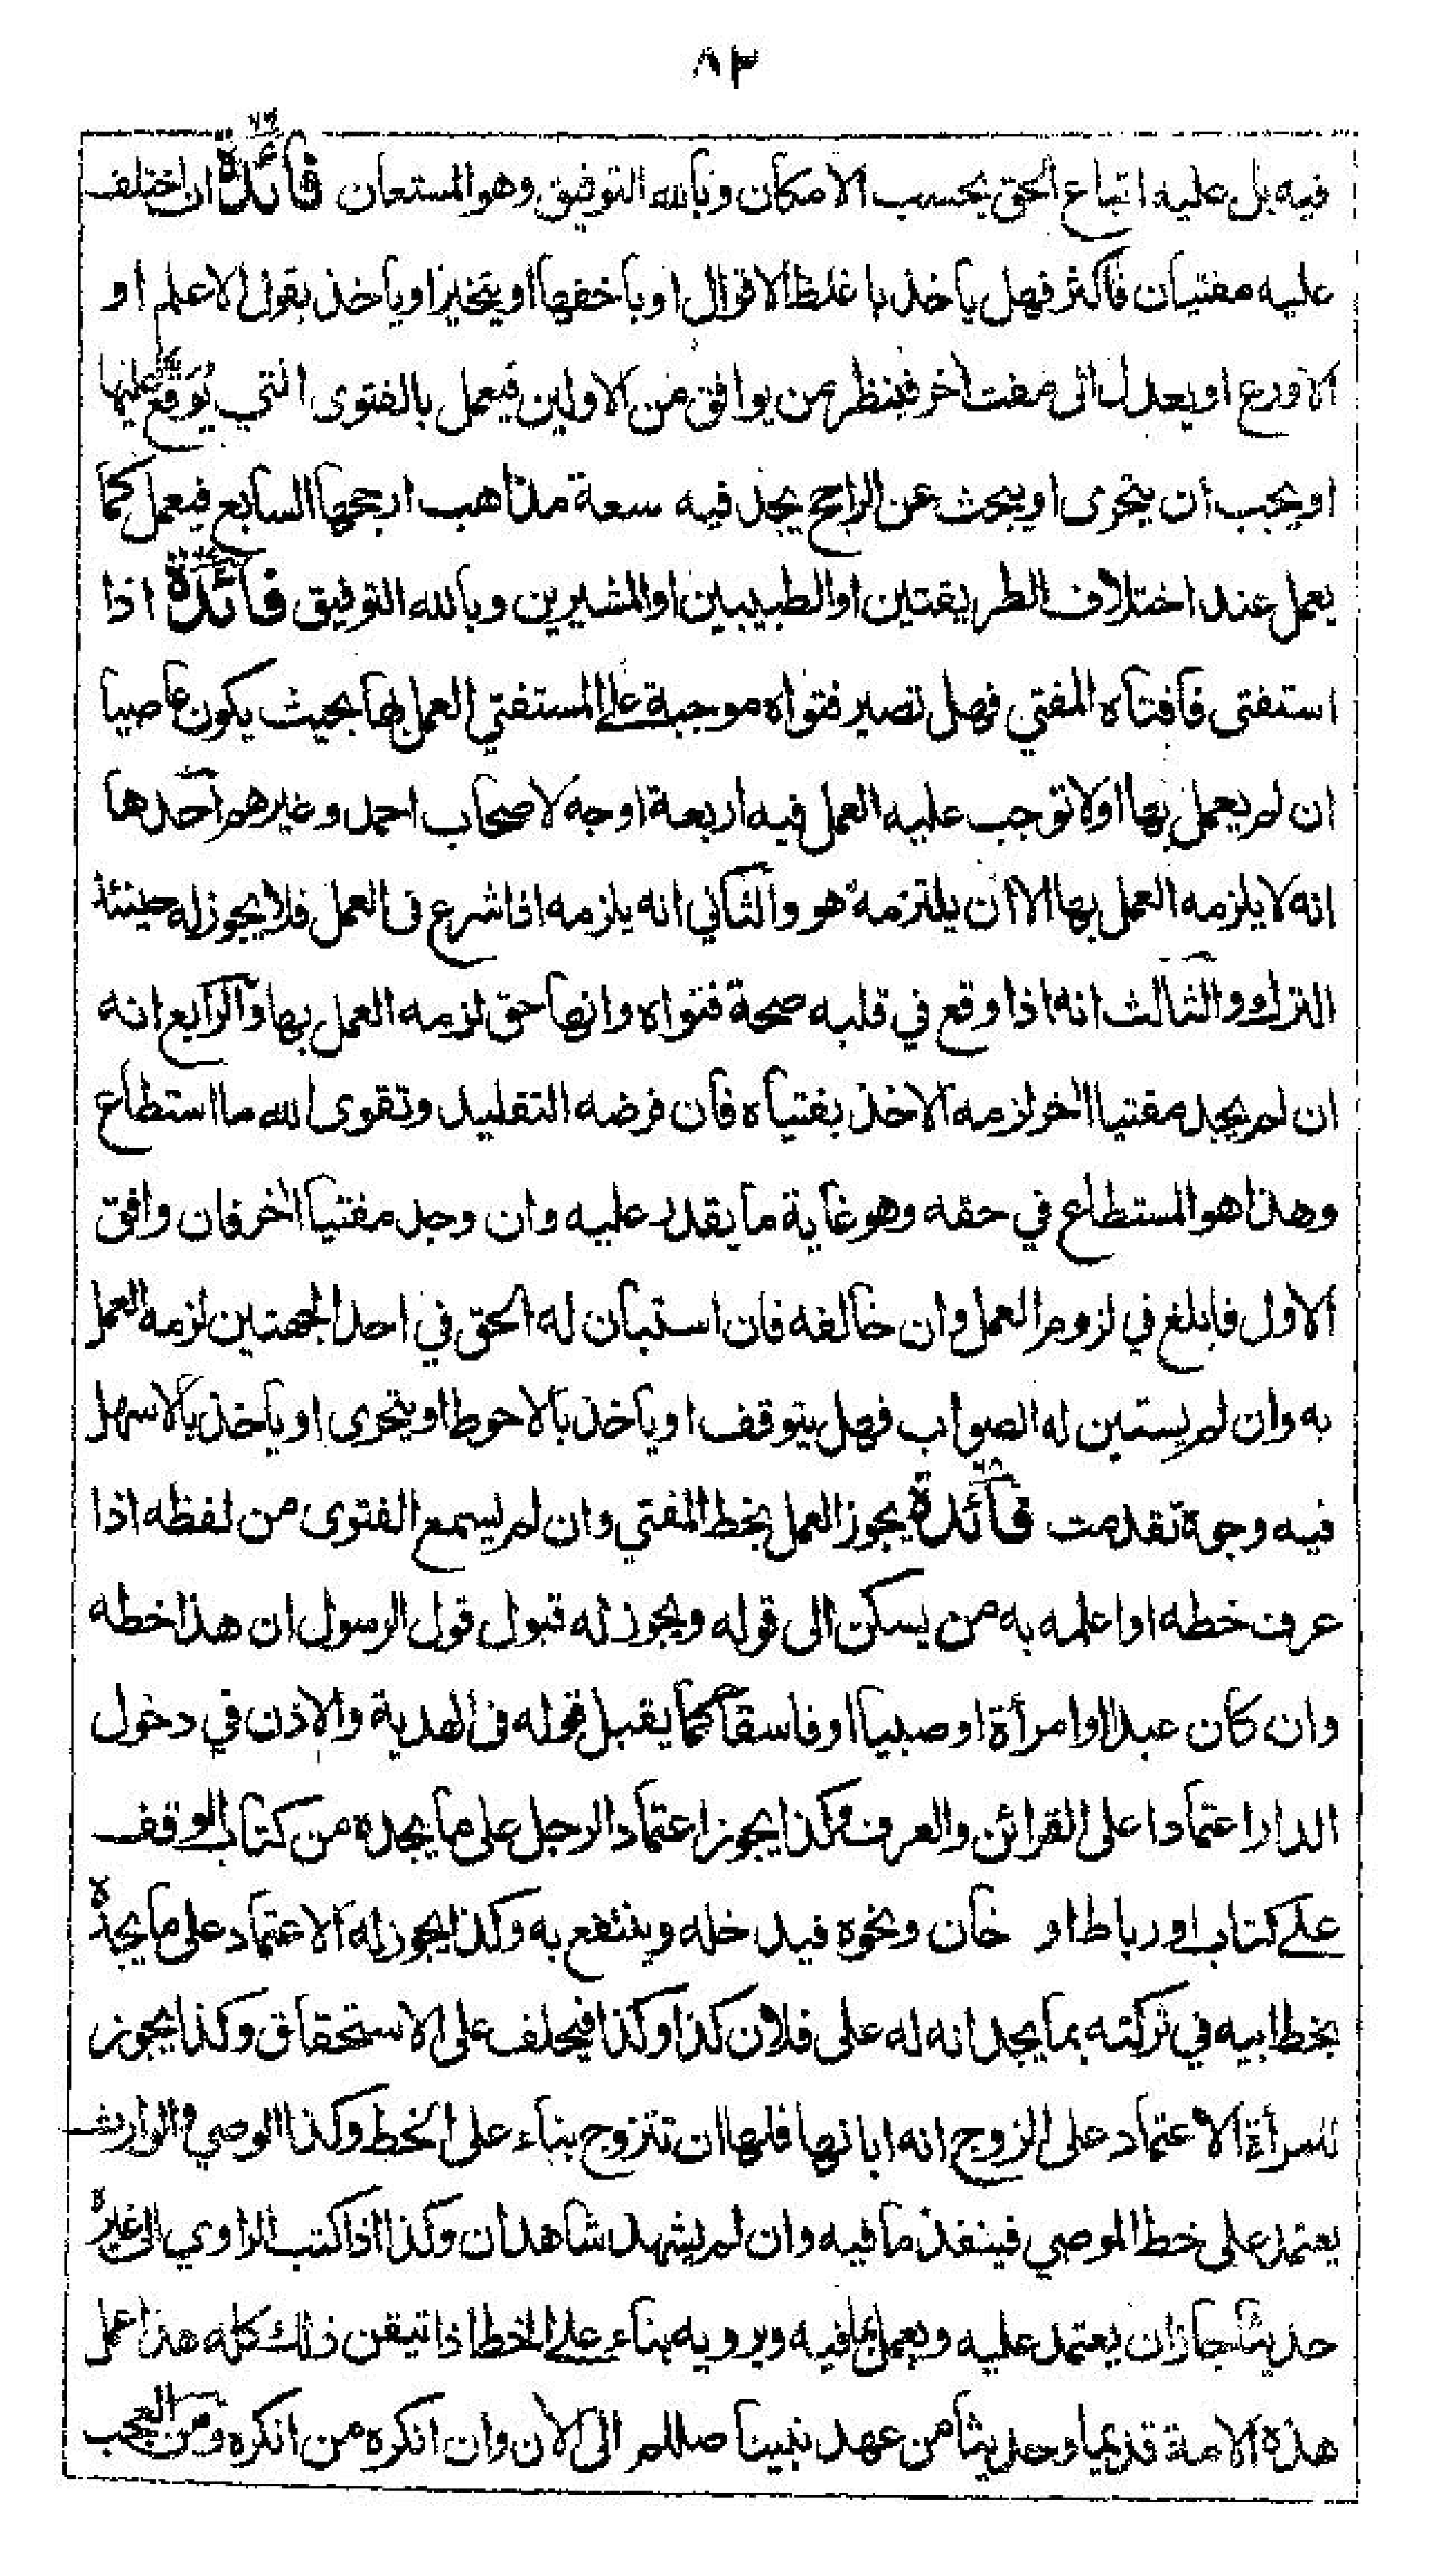 ٨٣
فيه بل عليه اتباع الحق بحسب الامكان وبالله التوفيق وهو المستعان فائدة ان اختلف
عليه مفتيان فاكثر فهل ياخذ باغلظ الاقوال او باخفها او يتخير او ياخذ بقول الاعلم او
الاورع او يعدل الى مفت اخر فينظر من يوافق من الاولين فيعمل بالفتوى التي يوقع عليها
او يجب ان يتحرى او يبحث عن الراجح يجد فيه سعة مذاهب ارجحها السابع فيعمل كما
يعمل عند اختلاف الطريقتين او الطبيبين او المشيرين وبالله التوفيق فائدة اذا
استفتى فافتاه المفتي فهل تصير فتواه موجبة على المستفتي العمل بها بحيث يكون عاصيا
ان لم يعمل بها او لا توجب عليه العمل فيه اربعة اوجه لاصحاب احمد وغيرهم احدها
انه لا يلزمه العمل بها الا ان يلتزمه هو والثاني انه يلزمه اذا شرع فى العمل فلا يجوز له حينئذ
الترك والثالث انه اذا وقع في قلبه صحة فتواه وانها حق لزمه العمل بها والرابع انه
ان لم يجد مفتيا اٰخر لزمه الاخذ بفتياه فان فرضه التقليد وتقوى الله ما استطاع
وهذا هو المستطاع في حقه وهو غاية ما يقدر عليه وان وجد مفتيا اٰخر فان وافق
الاول فابلغ في لزوم العمل وان خالفه فان استبان له الحق في احد الجهتين لزمه العمل
به وان لم يستبن له الصواب فهل يتوقف او ياخذ بالاحوط او يتحرى او ياخذ بالاسهل
فيه وجوه تقدمت فائدة يجوز العمل بخط المفتي وان لم يسمع الفتوى من لفظه اذا
عرف خطه او اعلمه به من يسكن الى قوله ويجوز له قبول قول الرسول ان هذا خطه
وان كان عبدا او امرأة او صبيا او فاسقا كما يقبل قوله فى الهدية والاذن في دخول
الدار اعتمادا على القرائن والعرف وكذا يجوز اعتماد الرجل على ما يجده من كتاب الوقف
على كتاب او رباط او خان ونحوه فيدخله وينتفع به وكذا يجوز له الاعتماد على ما يجده
بخط ابيه في تركته بما يجد انه له على فلان كذا وكذا فيحلف على الاستحقاق وكذا يجوز
للمرأة الاعتماد على الزوج انه ابانها فلها ان تتزوج بناء على الخط وكذا الوصي والوارث
يعتمد على خط الموصي فينفذ ما فيه وان لم يشهد شاهدان وكذا اذا كتب الراوي الى غيره
حديثا جاز ان يعتمد عليه ويعمل بما فيه ويرويه بناء على الخط اذا تيقن ذلك كله هذا عمل
هذه الامة قديما وحديثا من عهد نبينا صللم الى الاٰن وان انكره من انكره ومن العجب